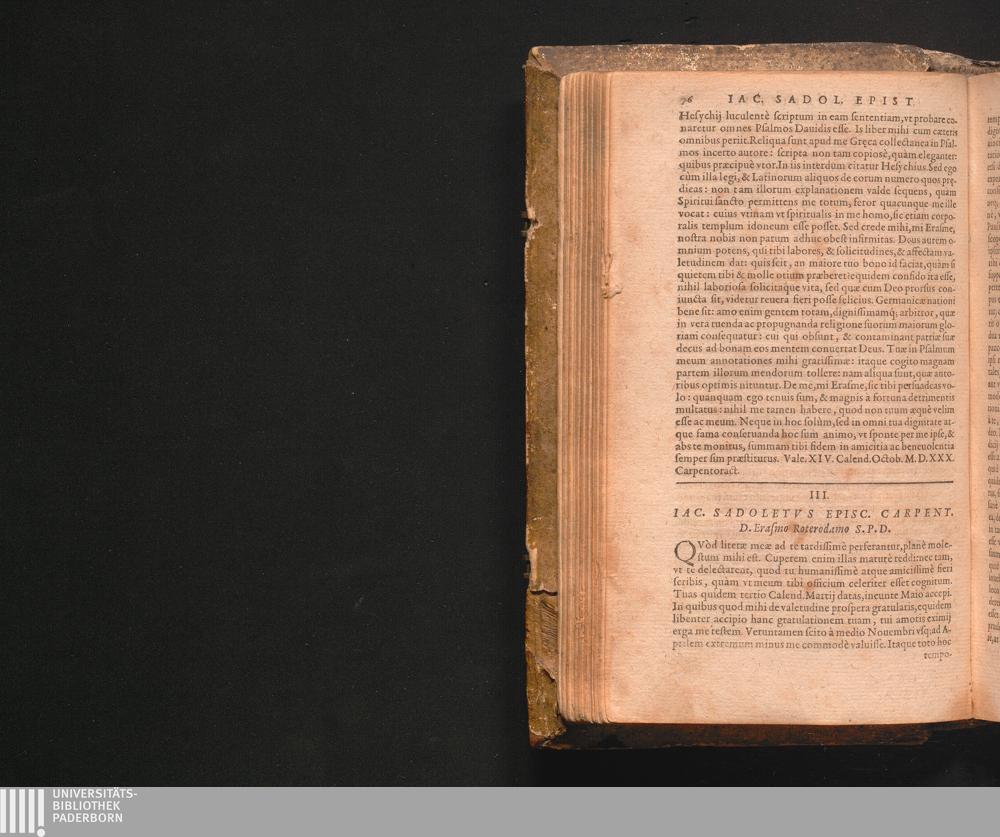 76 IAC. SADOL. EPIST.
Hesychij luculentè scriptum in eam sententiam, vt probare co-
naretur omnes Psalmos Dauidis esse. Is liber mihi cum cæteris
omnibus periit. Reliqua sunt apud me Gręca collectanea in Psal-
mos incerto autore: scripta non tam copiosè, quàm eleganter:
quibus præcipuè vtor. In iis interdum citatur Hesychius. Sed ego
cùm illa legi, & Latinorum aliquos de eorum numero quos prę-
dicas: non tam illorum explanationem valde sequens, quàm
Spiritui sancto permittens me totum, feror quacunque me ille
vocat: cuius vtinam vt spiritualis in me homo, sic etiam corpo-
ralis templum idoneum esse posset. Sed crede mihi, mi Erasme,
nostra nobis non parum adhuc obest infirmitas. Deus autem o-
mnium potens, qui tibi labores, & solicitudines, & affectam va-
letudinem dat: quis scit, an maiore tuo bono id faciat, quàm si
quietem tibi & molle otium præberet? equidem confido ita esse,
nihil laboriosa solicitaque vita, sed quæ cum Deo prorsus con-
iuncta sit, videtur reuera fieri posse felicius. Germanicæ nationi
bene sit: amo enim gentem totam, dignissimamq; arbitror, quæ
in vera tuenda ac propugnanda religione suorum maiorum glo-
riam consequatur: cui qui obsunt, & contaminant patriæ suæ
decus ad bonam eos mentem conuertat Deus. Tuæ in Psalmum
meum annotationes mihi gratissimæ: itaque cogito magnam
partem illorum mendorum tollere: nam aliqua sunt, quæ auto-
ribus optimis nituntur. De me, mi Erasme, sic tibi persuadeas vo-
lo: quanquam ego tenuis sum, & magnis a fortuna detrimentis
multatus: nihil me tamen habere, quod non tuum æquè velim
esse ac meum. Neque in hoc solùm, sed in omni tua dignitate at-
que fama conseruanda hoc sum animo, vt sponte per me ipse, &
abs te monitus, summam tibi fidem in amicitia ac beneuolentia
semper sim præstiturus. Vale. XIV. Calend. Octob. M. D. XXX.
Carpentoract.
III.
IAC. SADOLETVS EPISC. CARPENT.
D. Erasmo Roterodamo S. P. D.
QVòd literæ meæ ad te tardissimè perferantur, planè mole-
stum mihi est. Cuperem enim illas maturè reddi: nec tam,
vt te delectarent, quod tu humanissimè atque amicissimè fieri
scribis, quàm vt meum tibi officium celeriter esset cognitum.
Tuas quidem tertio Calend. Martij datas, ineunte Maio accepi.
In quibus quod mihi de valetudine prospera gratularis, equidem
libenter accipio hanc gratulationem tuam, tui amoris eximij
erga me testem. Veruntamen scito à medio Nouembri vsq; ad A-
prilem extremum minus me commodè valuisse. Itaque toto hoc
tempo-
UNIVERSITÄTS-
BIBLIOTHEK
PADERBORN